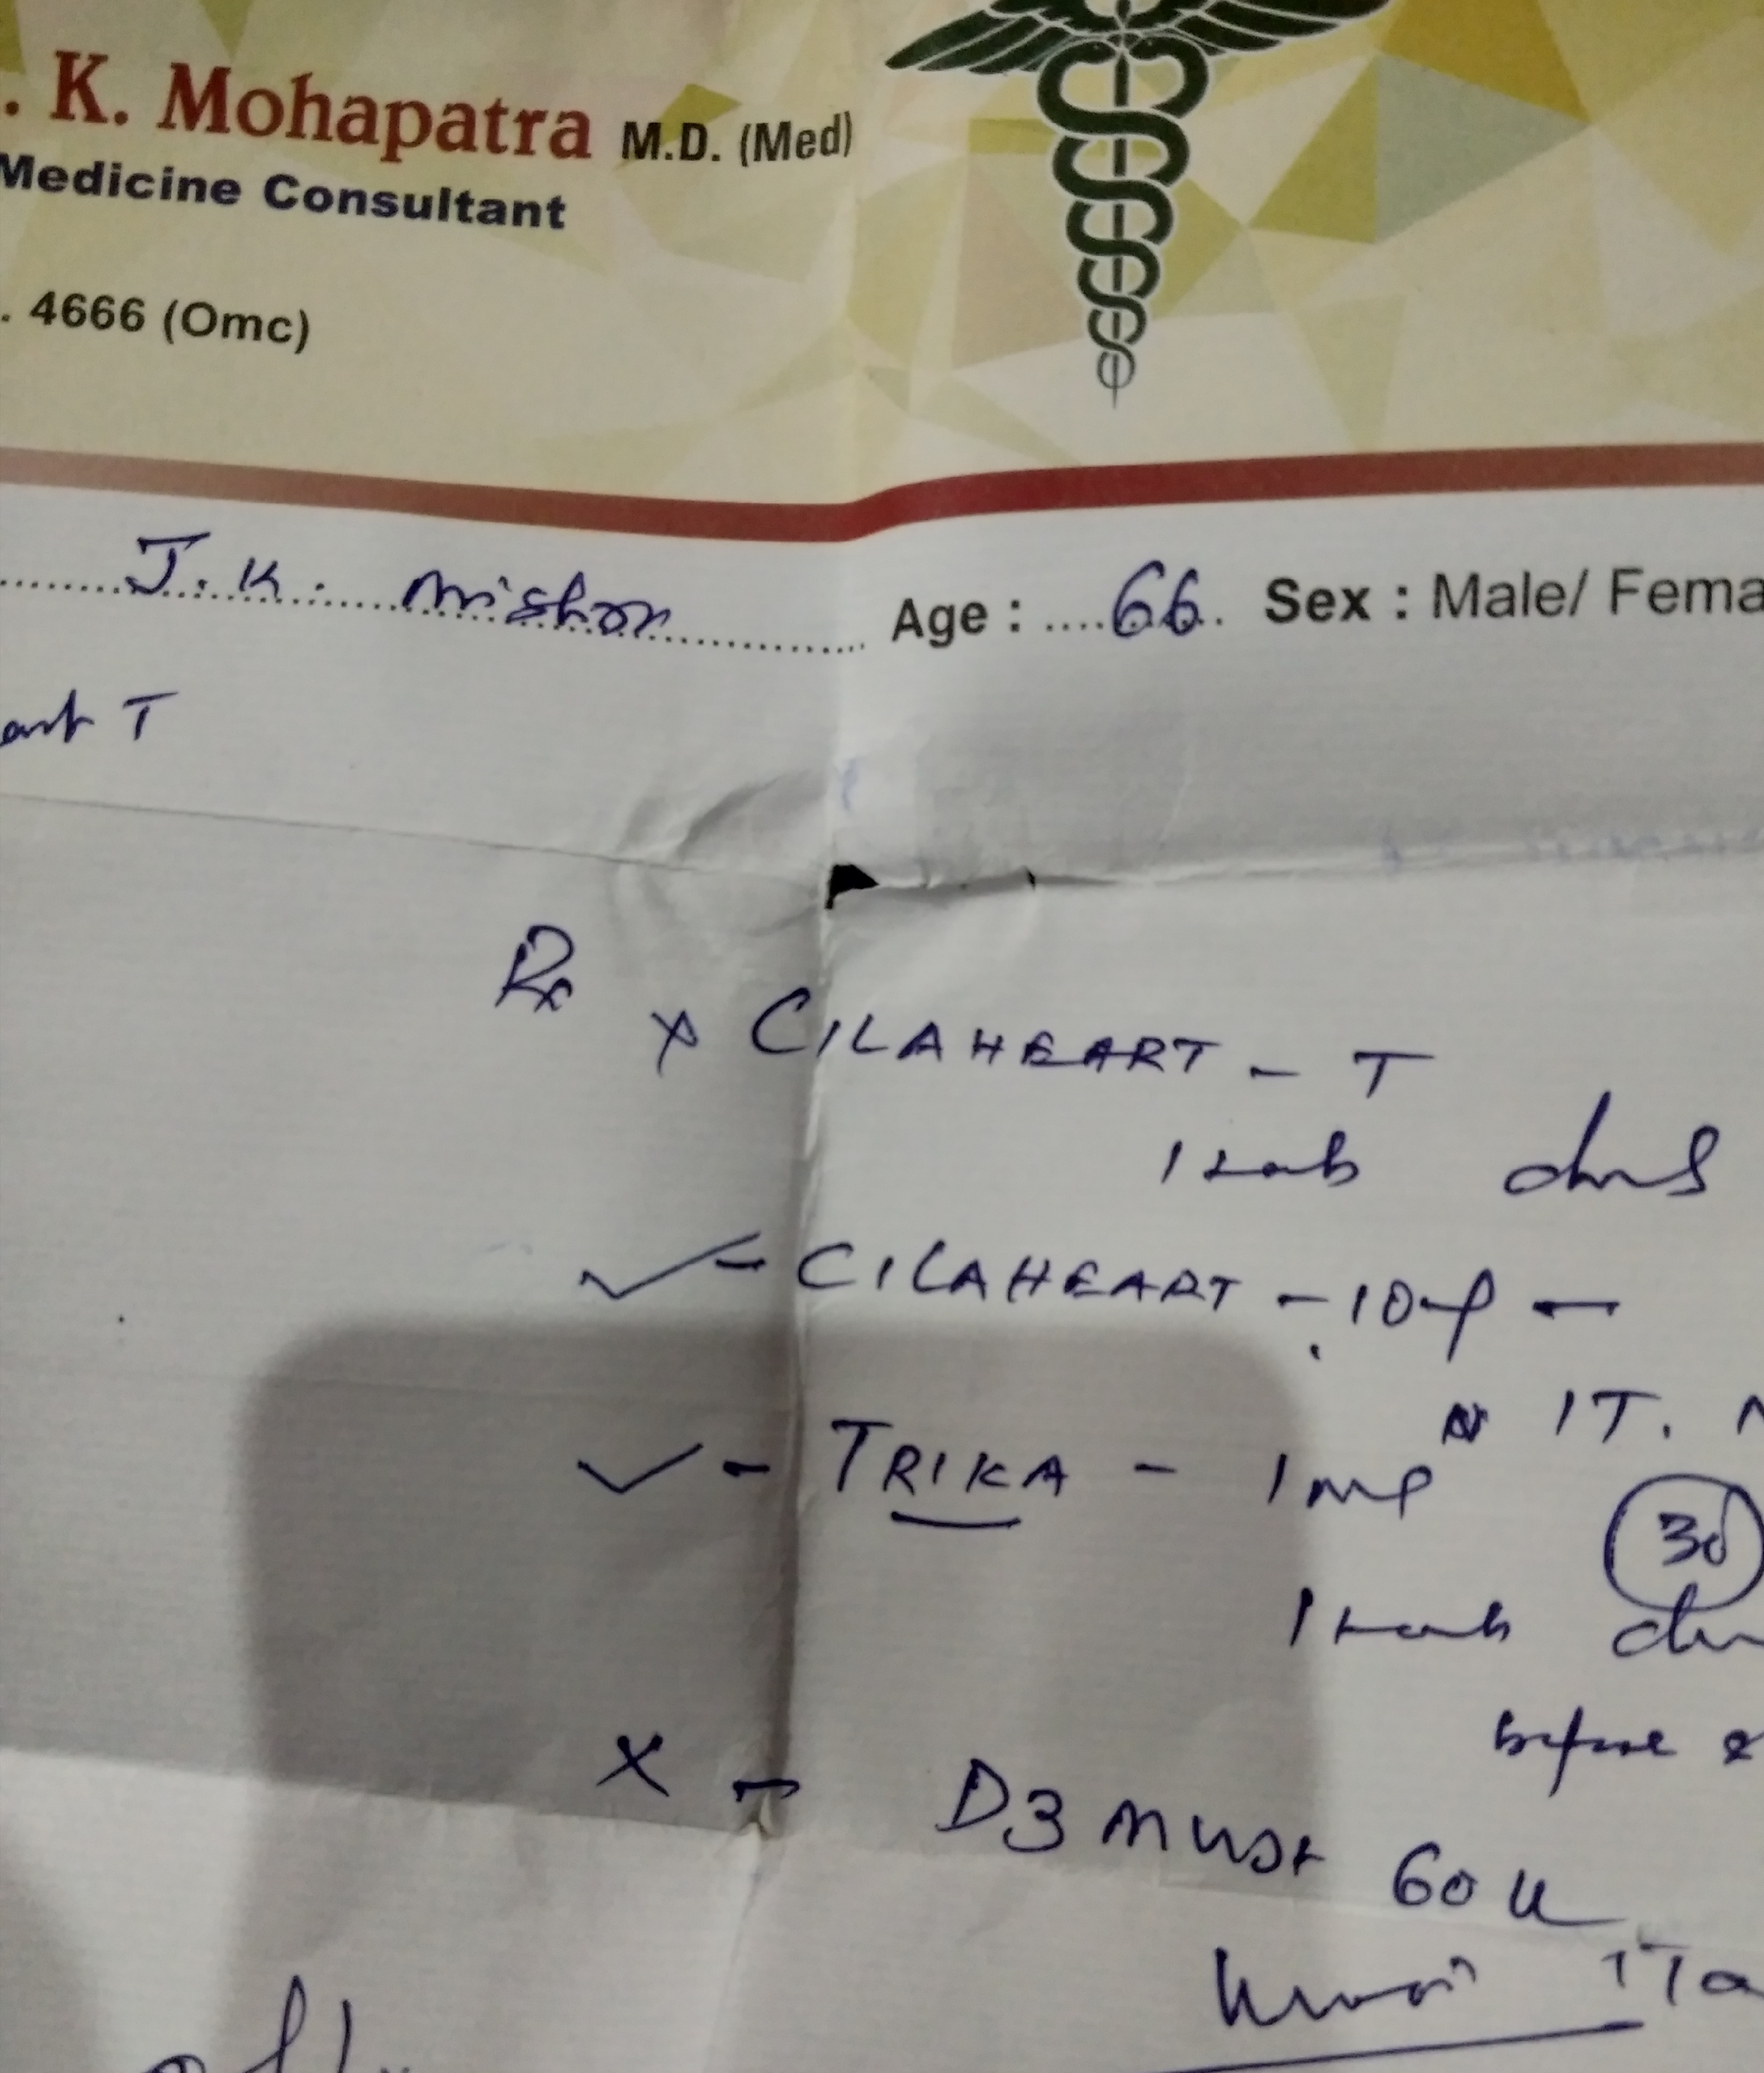 . K. Mohapatra M.D. (Med)
Medicine Consultant
. 4666 (Omc)
J. K. Mishra Age : 66 Sex : Male/ Fema
T
Rx
x CILAHEART - T
1 tab
✓ - CILAHEART - 10 mg -
1T.
✓ - TRIKA - 1 mg
30
1 tab
before
x - D3 Must 60k